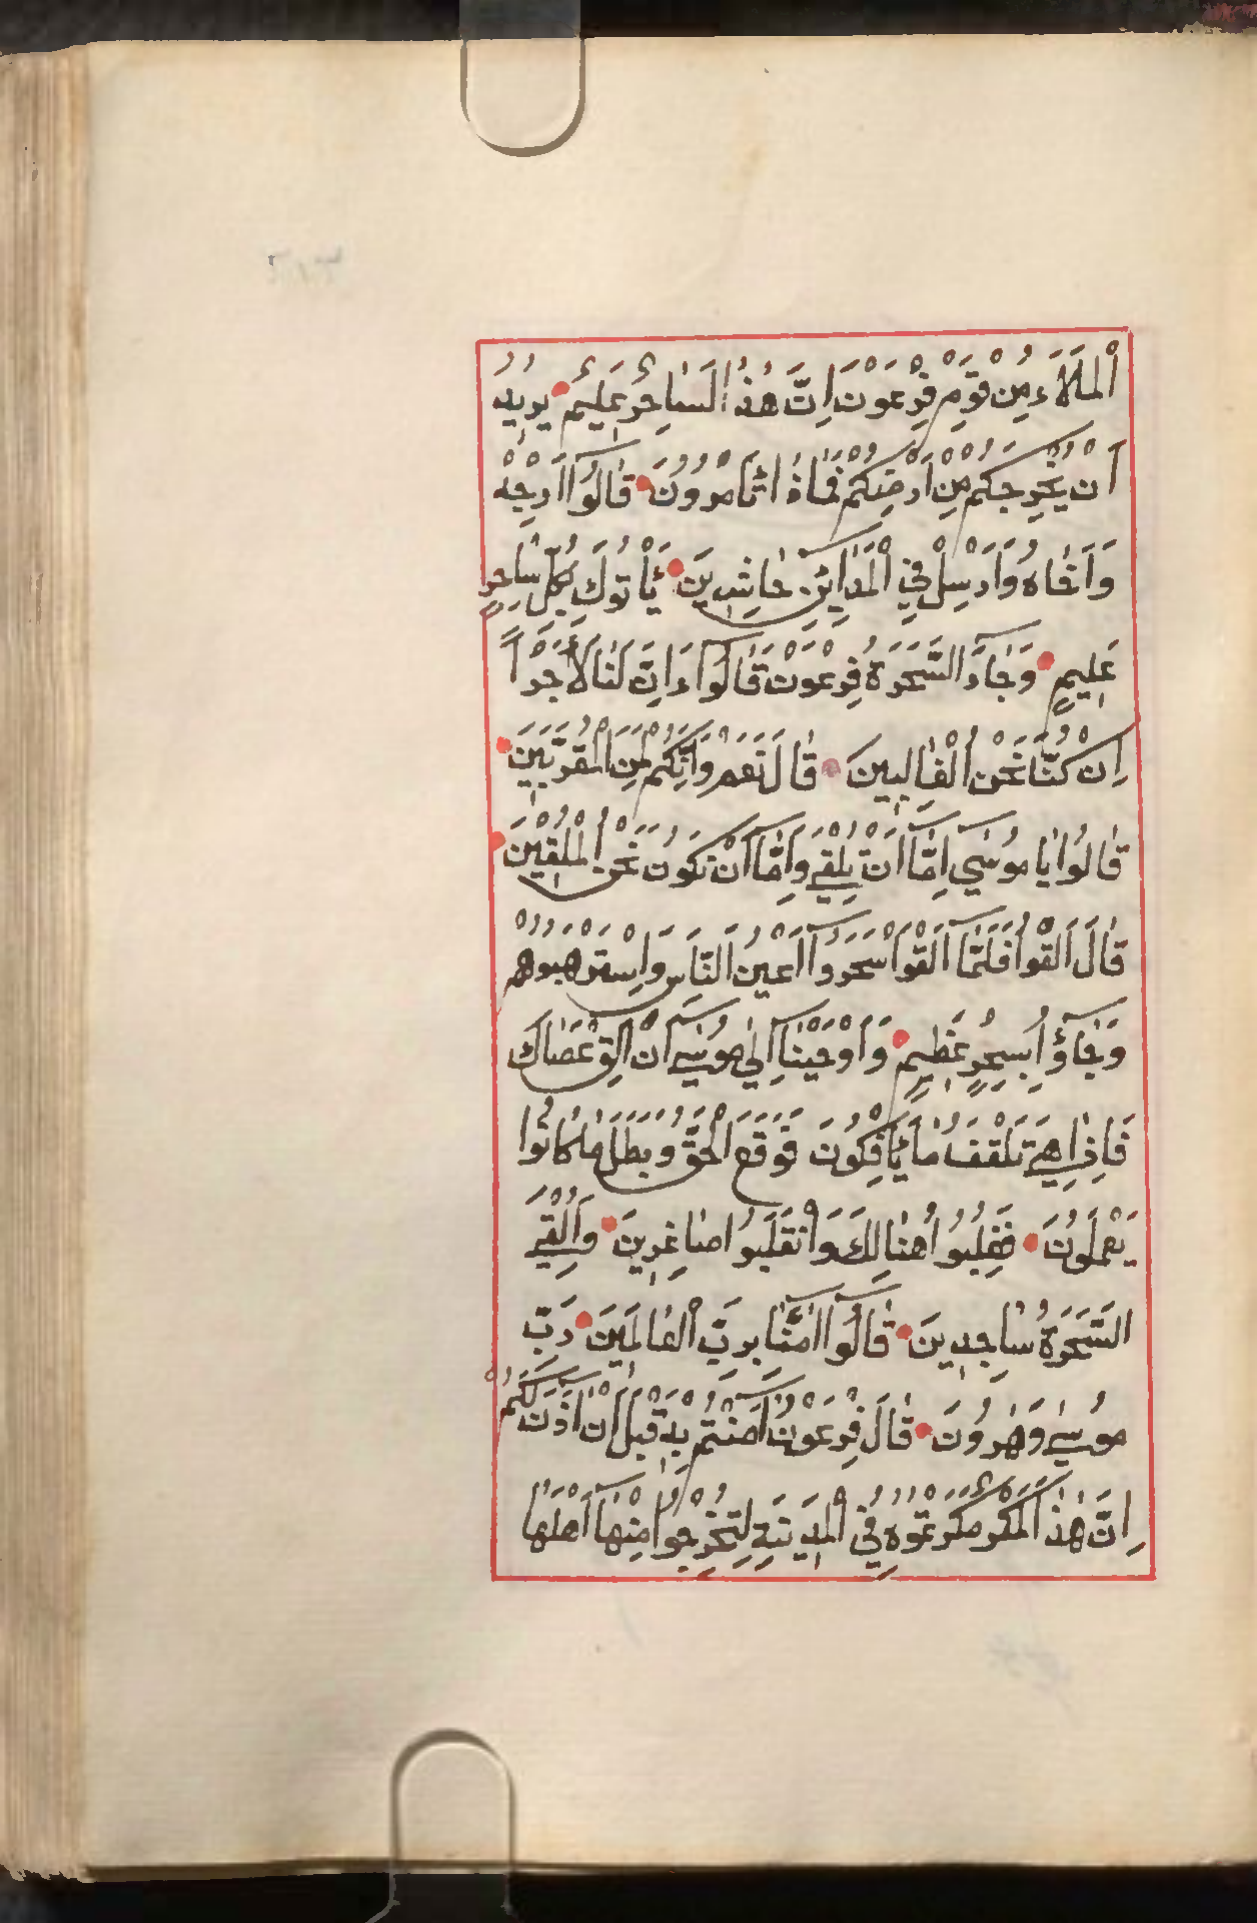 اْلمَلَاَء مِنْ قَوْمِ فِرْعَوْنَ اِنَّ هٰذَا لَسَاحِرٌ عَلِيمٌ يُرِيدُ
اَنْ يُخْرِجَكُمْ مِنْ اَرْضِكُمْ فَمَاذَا تَأْمُرُونَ قَالُوا اَرْجِهْ
وَاَخَاهُ وَاَرْسِلْ فِي الْمَدَايِنِ حَاشِدِينَ يَأْتُوكَ بِكُلِّ سَاحِرٍ
عَلِيمٍ وَجَآءَ السَّحَرَةُ فِرْعَوْنَ قَالُوآ ءَاِنَّ لَنَا لَأَجْرًا
اِنْ كُنَّا نَحْنُ الْغَالِبِينَ قَالَ نَعَمْ وَاِنَّكُمْ لَمِنَ الْمُقَرَّبِينَ
قَالُوا يَا مُوسٰي اِمَّآ اَنْ تُلْقِيَ وَاِمَّآ اَنْ نَكُونَ نَحْنُ الْمُلْقِينَ
قَالَ اَلْقُوا فَلَمَّآ اَلْقَوْا سَحَرُوآ اَعْيُنَ النَّاسِ وَاسْتَرْهَبُوهُمْ
وَجَآؤُا بِسِحْرٍ عَظِيمٍ وَاَوْحَيْنَآ اِلٰي مُوسٰيٓ اَنْ اَلْقِ عَصَاكَ
فَاِذَا هِيَ تَلْقَفُ مَا يَأْفِكُونَ فَوَقَعَ الْحَقُّ وَبَطَلَ مَا كَانُوا
يَعْمَلُونَ فَغُلِبُوا هُنَالِكَ وَانْقَلَبُوا صَاغِرِينَ وَاُلْقِيَ
السَّحَرَةُ سَاجِدِينَ قَالُوآ اٰمَنَّا بِرَبِّ الْعَالَمِينَ رَبِّ
مُوسٰي وَهٰرُونَ قَالَ فِرْعَوْنُ اٰمَنْتُمْ بِهِ قَبْلَ اَنْ اٰذَنَ لَكُمْ
اِنَّ هٰذَا لَمَكْرٌ مَكَرْتُمُوهُ فِي الْمَدِينَةِ لِتُخْرِجُوا مِنْهَآ اَهْلَهَا